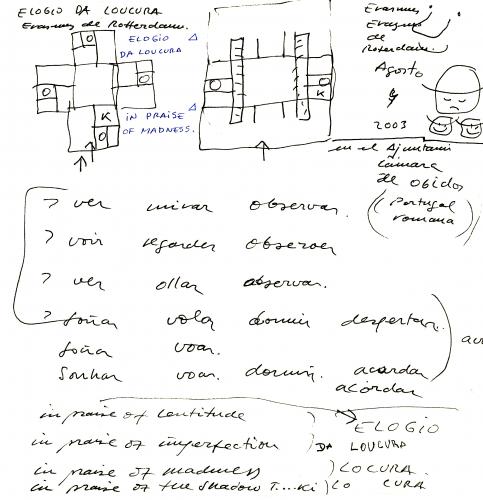 ELOGIO DA LOUCURA
Erasmus de Rotterdam.
ELOGIO
DA LOUCURA
IN PRAISE
OF MADNESS.
O
O
O
K
O
O
O
K
Erasmus
Erasmo
de
Roterdam.
Agosto
y
2003
en el Ajuntam
Câmara
de OBIDOS
(Portugal
romana)
> ver mirar observar.
> voir regarder observer
> ver ollar observar.
> soñar volar dormir despertar.
soñar voar.
Sonhar voar. dormir. acordar
acordar
in praise of lentitude
in praise of imperfection
in praise of madness
in praise of the shadow T....Ki
ELOGIO
DA LOUCURA
LOCURA.
LO CURA.